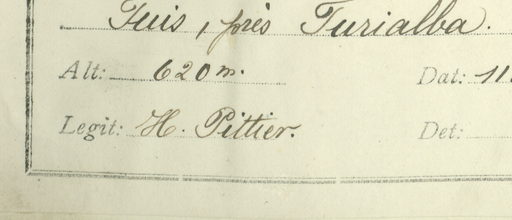 Tuis, près Turialba.
Alt: 620 m. Dat: 11
Legit: H. Pittier. Det: